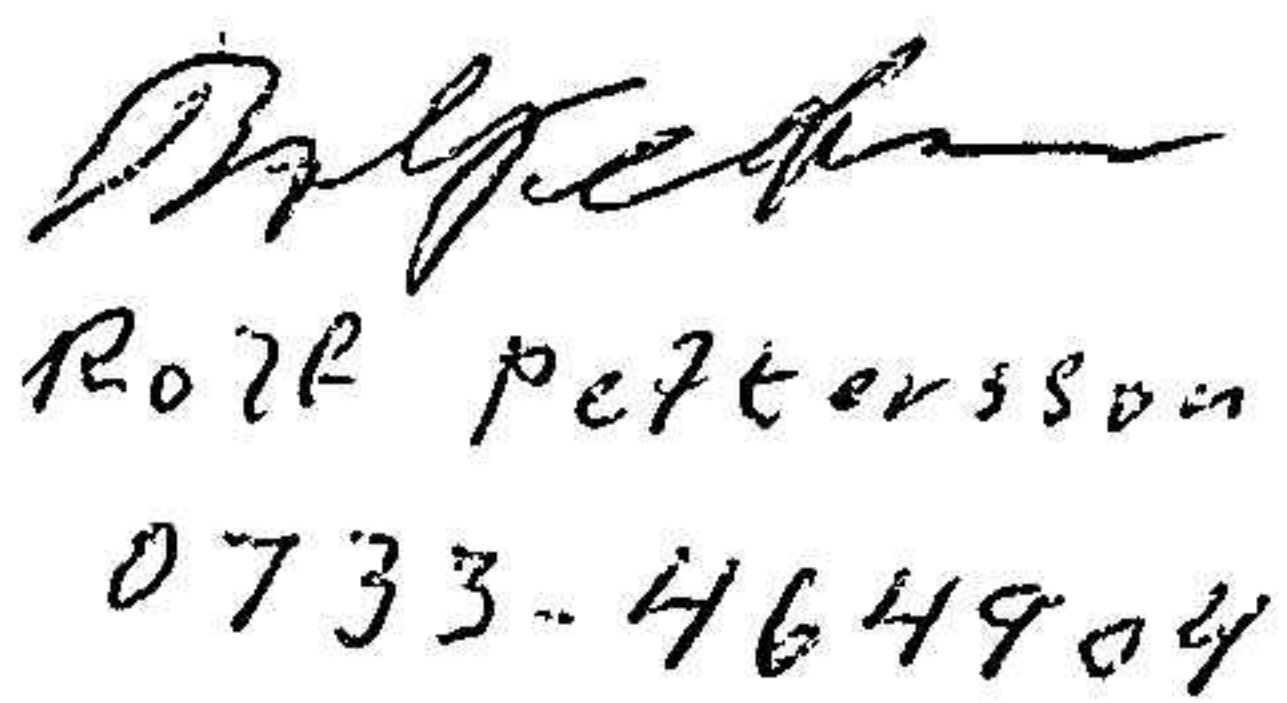 Rolf Pettersson
0733-464904